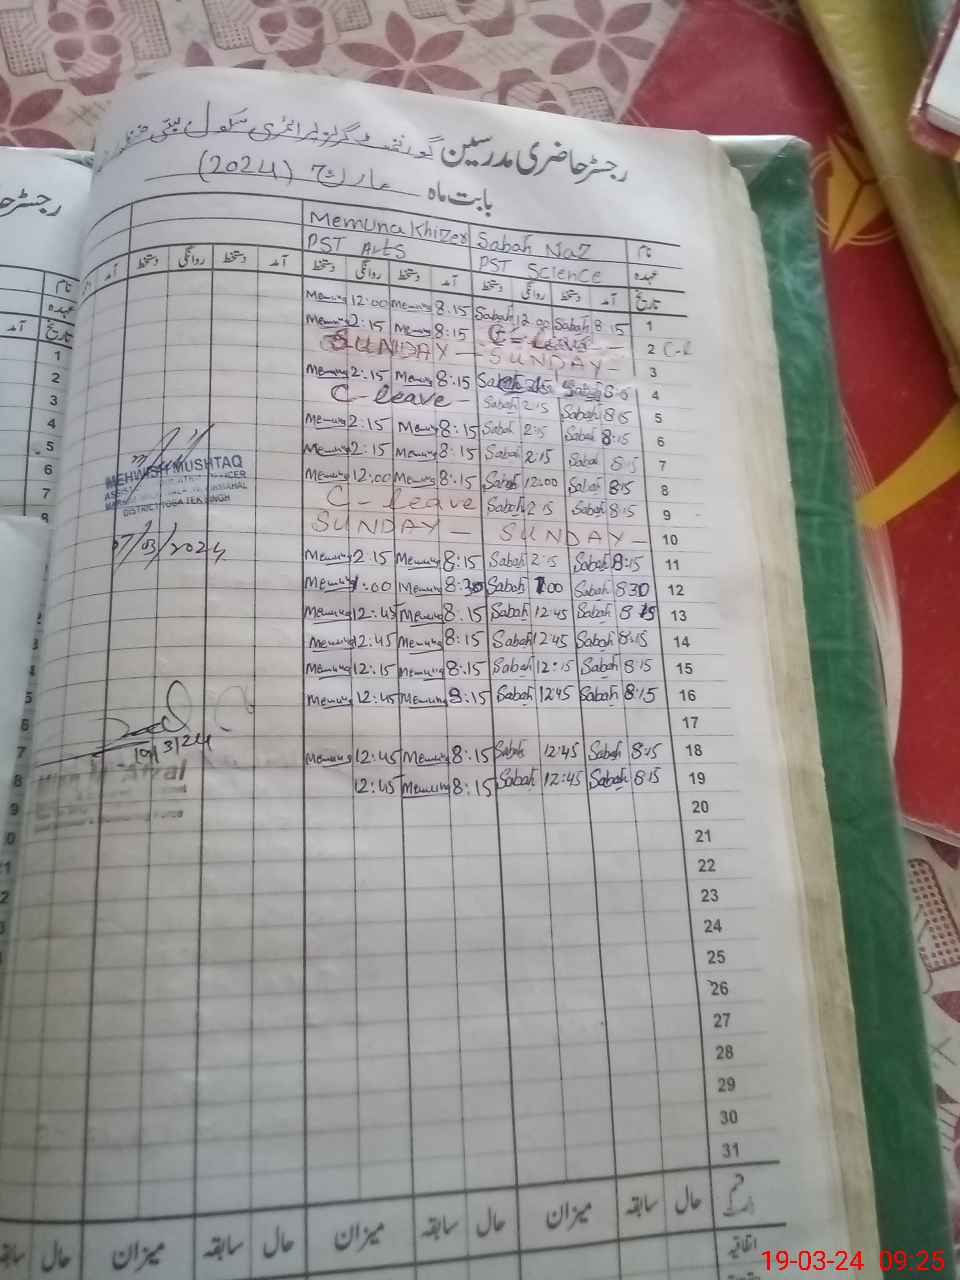 رجسٹر حاضری مدرسین گورنمنٹ گرلز پرائمری سکول بستی
بابت ماہ مارچ (2024)
نام Sabah Naz Memuna Khizer
عہدہ PST Science PST Arts
تاریخ آمد دستخط روانگی دستخط آمد دستخط روانگی دستخط آمد دستخط روانگی دستخط آمد
Memuna 12:00 Memuna 8:15 Sabah 12:00 Sabah 8:15 1
Memuna 2:15 Memuna 8:15 C-Leave 2 C-l
SUNDAY - SUNDAY - 3
Memuna 2:15 Memuna 8:15 Sabah 4
C-leave - Sabah 2:15 Sabah 8:15 5
Memuna 2:15 Memuna 8:15 Sabah 2:15 Sabah 8:15 6
Memuna 2:15 Memuna 8:15 Sabah 2:15 Sabah 8:15 7
Memuna 12:00 Memuna 8:15 Sabah 12:00 Sabah 8:15 8
C-leave Sabah 2:15 Sabah 8:15 9
SUNDAY - SUNDAY - 10
Memuna 2:15 Memuna 8:15 Sabah 2:15 Sabah 8:15 11
Memuna 1:00 Memuna 8:30 Sabah 1:00 Sabah 8:30 12
Memuna 12:45 Memuna 8:15 Sabah 12:45 Sabah 8:15 13
Memuna 12:45 Memuna 8:15 Sabah 12:45 Sabah 8:15 14
Memuna 12:15 Memuna 8:15 Sabah 12:15 Sabah 8:15 15
Memuna 12:45 Memuna 8:15 Sabah 12:45 Sabah 8:15 16
17
Memuna 12:45 Memuna 8:15 Sabah 12:45 Sabah 8:15 18
12:45 Memuna 8:15 Sabah 12:45 Sabah 8:15 19
20
21
22
23
24
25
26
27
28
29
30
31
حال سابقہ میزان حال سابقہ میزان حال سابقہ میزان حال سابقہ
اتفاقیہ
MEHWISH MUSHTAQ
DISTRICT TOBA TEK SINGH
07/03/2024
19/3/24
رجسٹر
نام
عہدہ
تاریخ آمد
1
2
3
4
5
6
7
8
19-03-24 09:25